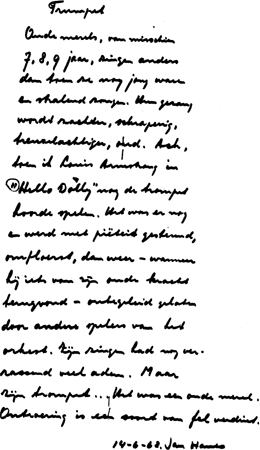 Trumpet
Oude merels, van misschien
7, 8, 9 jaar, zingen anders
dan toen ze nog jong waren
en stralend zongen. Hun gezang
wordt zachter, schraperig,
treuzelachtiger, oud. Ach,
toen ik Louis Armstrong in
"Hello Dolly" nog de trompet
hoorde spelen. Het was er nog
en werd met piëteit gesteund,
omfloerst, dan weer – wanneer
hij iets van zijn oude kracht
terugvond – onbegeleid gelaten
door andere spelers van het
orkest. Zijn zingen had nog ver-
rassend veel adem. Maar
zijn trompet.. Het was een oude merel.
Ontroering is een soort van fel verdriet.
14-6-68. Jan